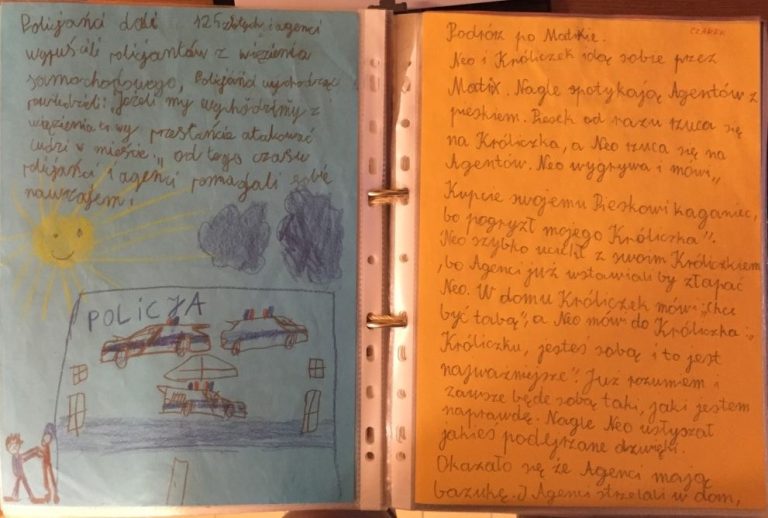 Policjanci dali 125 złotych i agenci
wypuścili policjantów z więzienia
samochodowego, Policjanci wychodząc
powiedzieli: Jeżeli my wychodzimy z
więzienia to wy przestańcie atakować
ludzi w mieście." od tego czasu
policjańci i agenci pomagali sobie
nawzajem!
POLICJA
CZAREK
Podróż po Matrixie.
Neo i Króliczek idą sobie przez
Matrix. Nagle spotykają Agentów z
pieskiem. Piesek od razu rzuca się
na Króliczka, a Neo rzuca się na
Agentów. Neo wygrywa i mówi „
Kupcie swojemu Pieskowi kaganiec,
bo pogryzł mojego Króliczka".
Neo szybko uciekł z swoim Króliczkiem
, bo Agenci już wstawali by złapać
Neo. W domu Króliczek mówi „Chcę
być tobą", a Neo mów do Króliczka: „
Króliczku, jesteś sobą i to jest
najważniejsze" Już rozumiem i
zawsze będę sobą taki, jaki jestem
naprawdę. Nagle Neo usłyszał
jakieś podejrzane dzwięki.
Okazało się że Agenci mają
bazukę. I Agenci strzelali w dom,